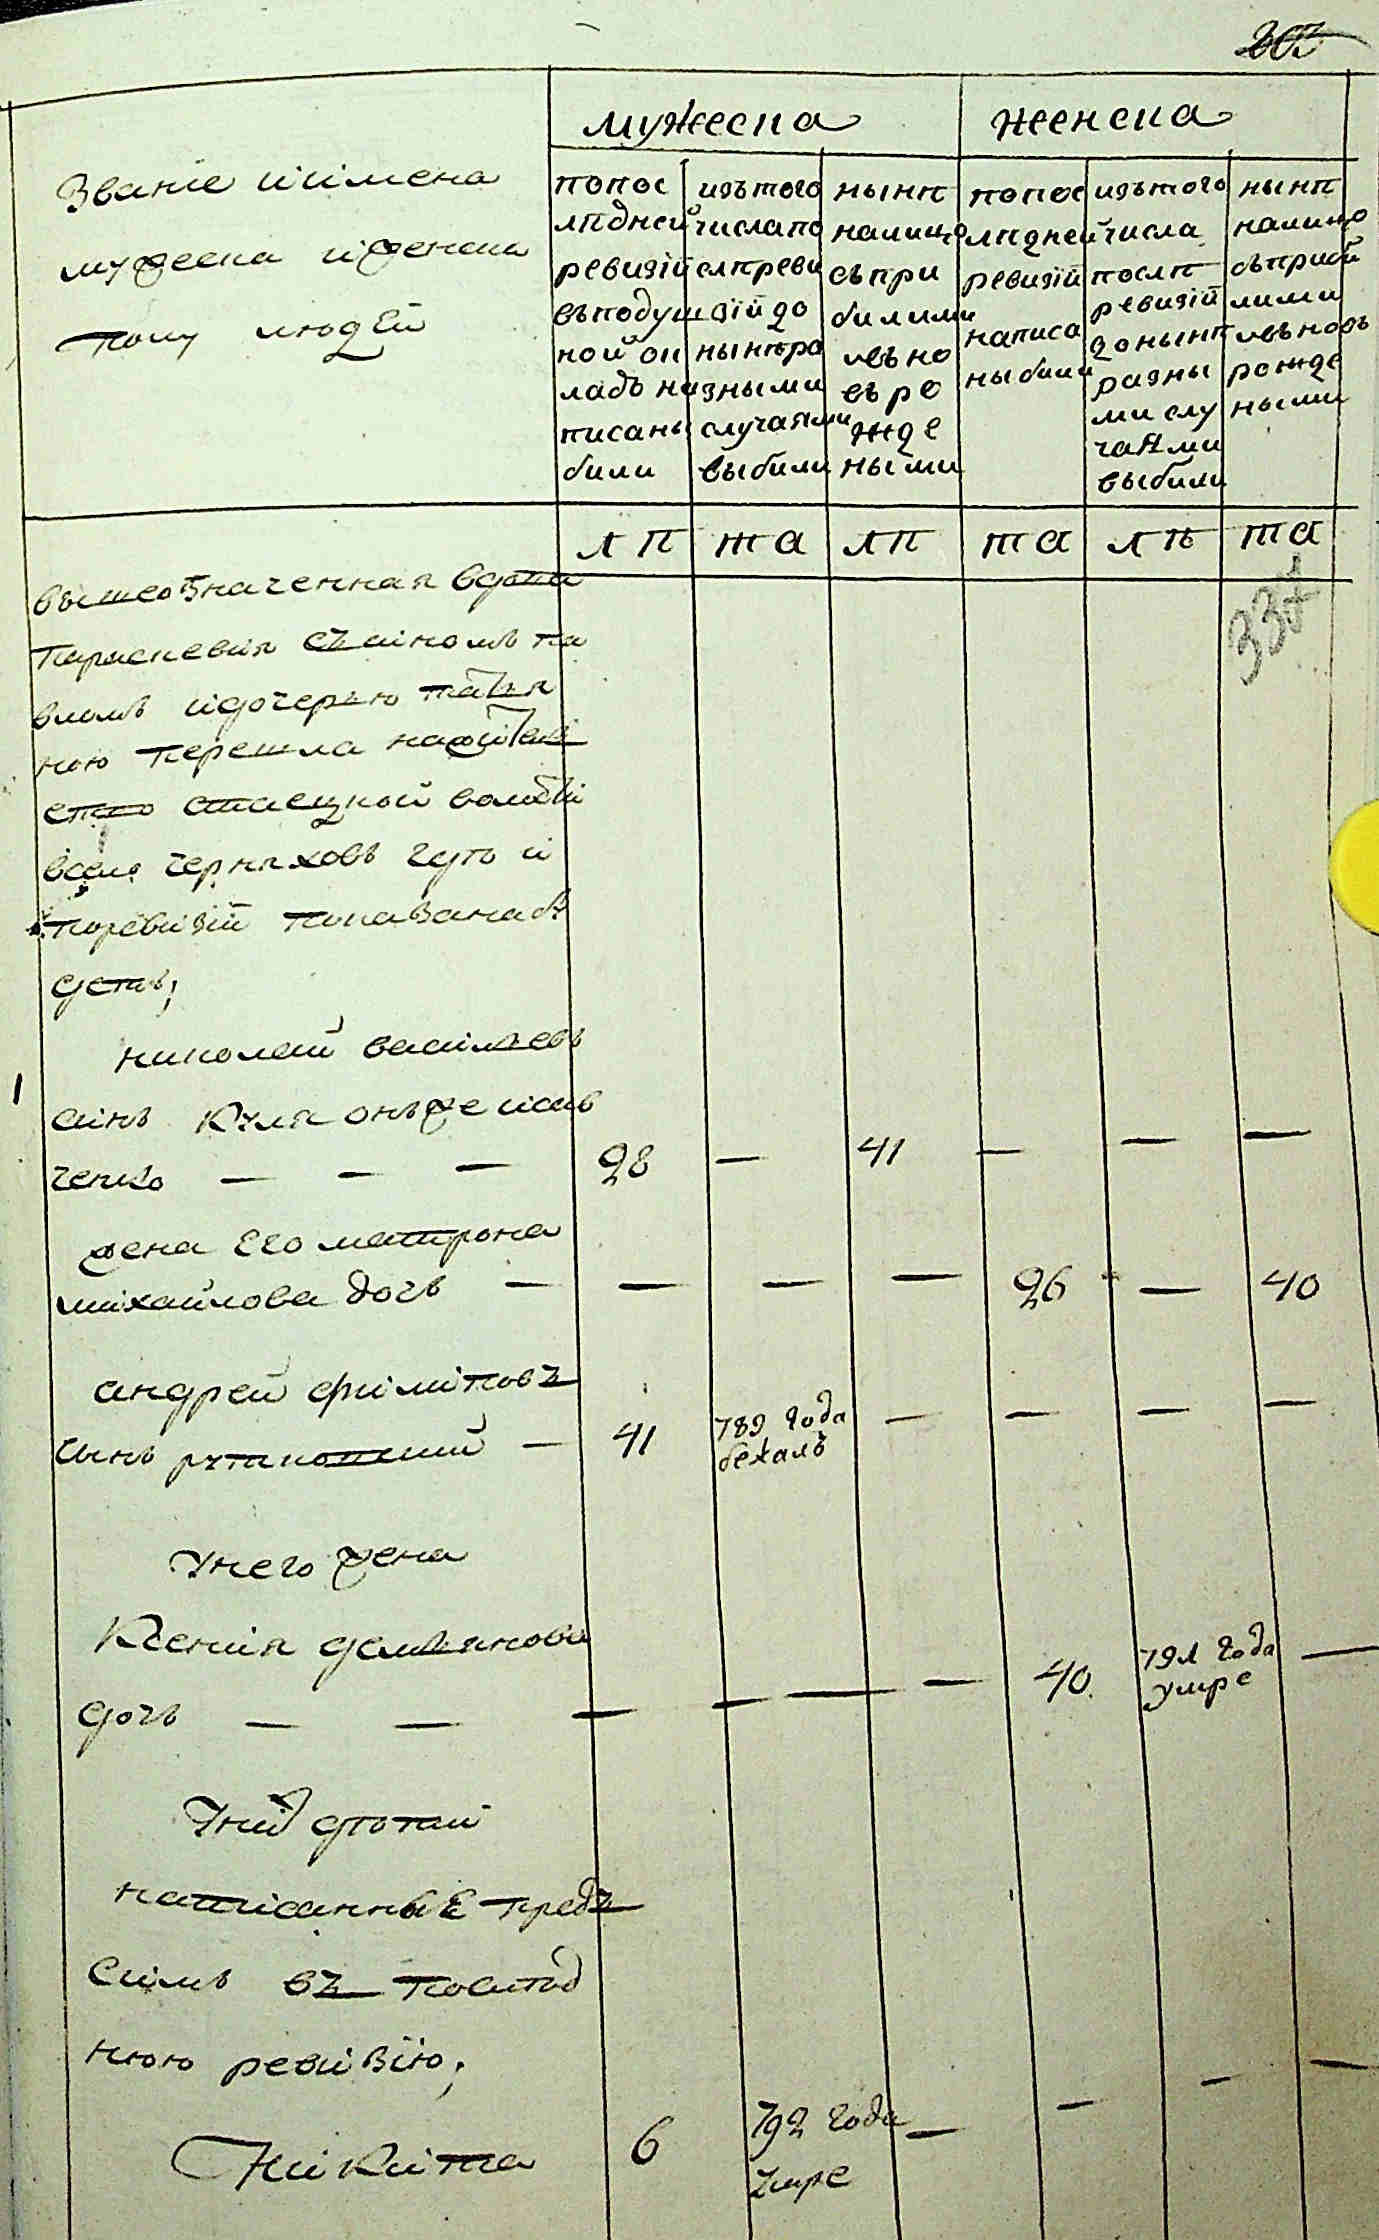 203
мужеска
женска
Званіе иимена
мужеска иженска
полу людей
попос
лѣдней
ревизій
въподуш
ной ок
ладъ на
писаны
били
изътого
числапо
слѣреви
зій до
нынѣра
зными
случаями
выбили
нынѣ
налицо
съпри
билими
лвъно
въро
жде
ными
попос
лѣдней
ревизій
написа
ны били
изътого
числа
послѣ
ревизій
донынѣ
разны
ми слу
чаями
выбили
нынѣ
налицо
съприби
лими
лвъновъ
рожде
ными
лѣ та лѣ та лѣ та
337
вышеозначенная вдова
Параскевия съсіномъ па
вломъ идочерью татья
ною перешла нажитель
ство стаецкой волости
вsело черняховъ гдѣ и
поревизій показана бу
детъ;
николай васильевъ
1
синъ Куля онъже исав
ченко — — — 28 — 41 — — —
жена Его матрона
михайлова дочь — — — — 26 — 40
андрей филиповъ
сынъ рутковский — 41 789 года бежалъ — — — —
Унего жена
Ксенія демьянова
дочь — — — — — — 40. 791 года умре —
Унихъ дѣтей
написанныЕ предъ
симъ въ послѣд
нюю ревизію;
Никита 6 792 года умре — — — —